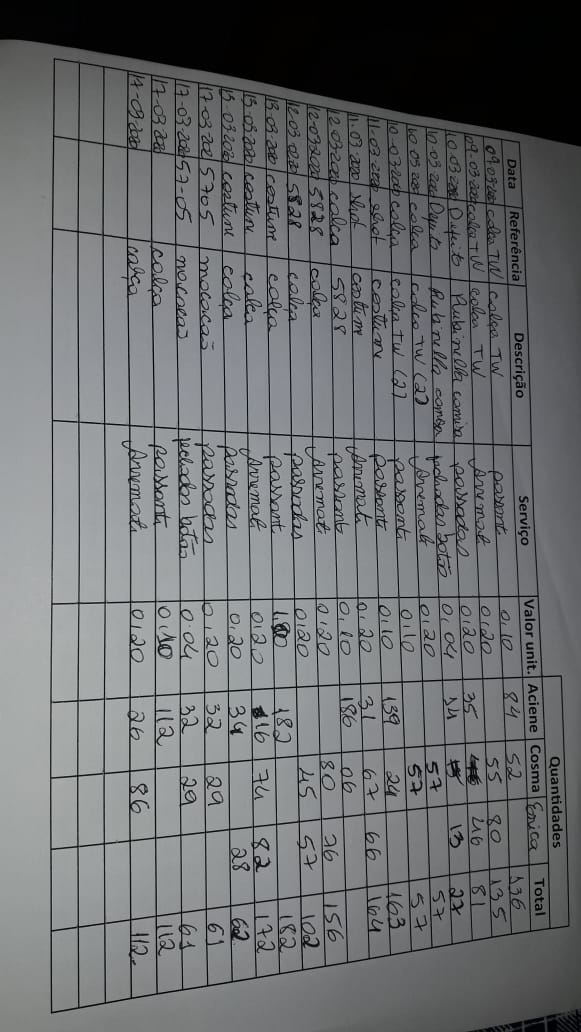 Quantidades
Data Referência Descrição Serviço Valor unit. Aciene Cosma Erica Total
09-03-2020 calça TW calça TW passant 0,10 84 52 136
09-03-2020 calça TW calça TW Arremat 0,20 55 80 135
10-03-2020 Defeito Rubinella camisa passadas 0,20 35 46 81
10-03-2020 Rubinella camisa fechados botão 0,04 14 13 27
10-03-2020 calça calça TW (2) Arremat 0,20 57 57
10-03-2020 calça calça TW (2) passant 0,10 57 57
11-03-2020 shot costume passant 0,10 139 24 163
11-03-2020 shot costume Arremat 0,20 31 67 66 164
12-03-2020 calça 5828 passant 0,10 186 06
12-03-2020 5828 calça Arremat 0,20 80 76 156
12-03-2020 5828 calça passadas 0,20 45 57 102
13-03-2020 costume calça passant 182 182
13-03-2020 costume calça Arremat 0,20 16 74 82 172
13-03-2020 costume calça passadas 0,20 34 28 62
17-03-202 5705 macacão passadas 0,20 32 29 61
17-03-2020 57-05 macacão fechados botão 0.04 32 29 61
17-03-2020 calça passant 0,10 112 112
17-03-2020 calça Arremat 0,20 26 86 112